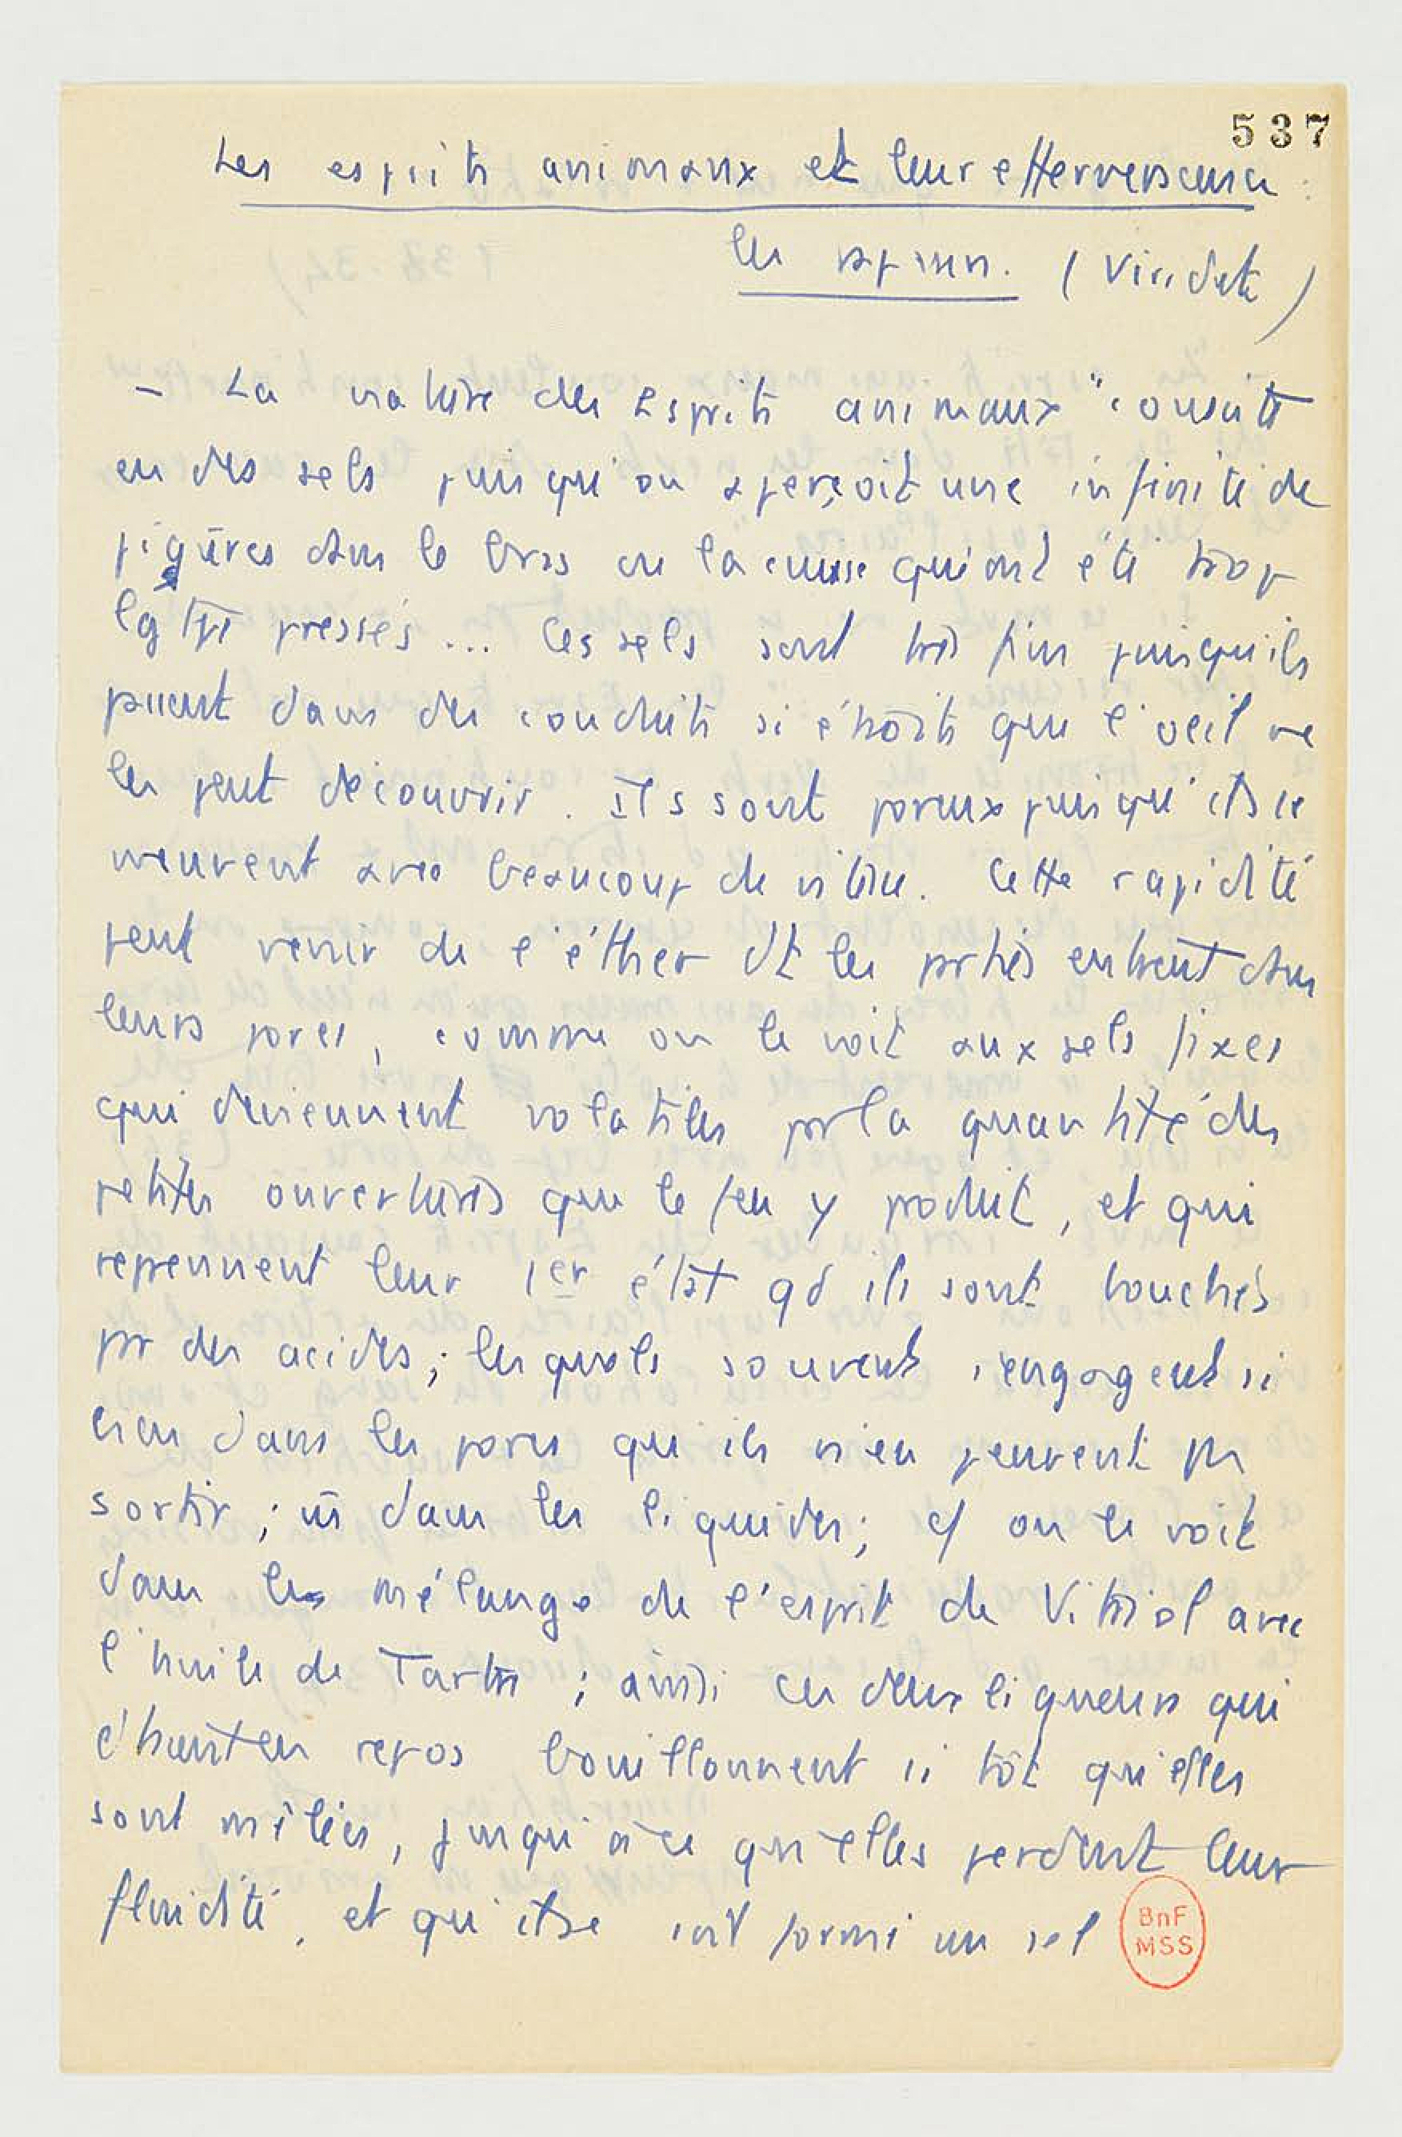 537
Les esprits animaux et leur effervescence :
les vapeurs. (Viridet)
– La nature des Esprits animaux "consiste
en des sels puisqu'on aperçoit une infinité de
piqûres dans le bras ou la cuisse qui ont été trop
lgtps pressés... Ces sels sont très fins puisqu'ils
passent dans des conduits si étroits que l'oeil ne
les peut découvrir. Ils sont poreux puisqu'ils se
meuvent avec beaucoup de vitesse. Cette rapidité
peut venir de l'éther dt les prties entrent dans
leurs pores, comme on le voit aux sels fixes
qui deviennent volatiles pr la quantité des
petites ouvertures que le feu y produit, et qui
reprennent leur 1er état qd ils sont bouchés
pr des acides ; lesquels souvent s'engagent si
bien dans les pores qu'ils n'en peuvent pas
sortir ; ni dans les liquides ; cf on le voit
dans les mélange de l'esprit de Vitriol avec
l'huile de Tartre ; ainsi ces deux liqueurs qui
étaient en repos bouillonnent si tôt qu'elles
sont mêlées, jusqu'à ce qu'elles perdent leur
fluidité, et qu'il se soit formé un sel
BnF
MSS